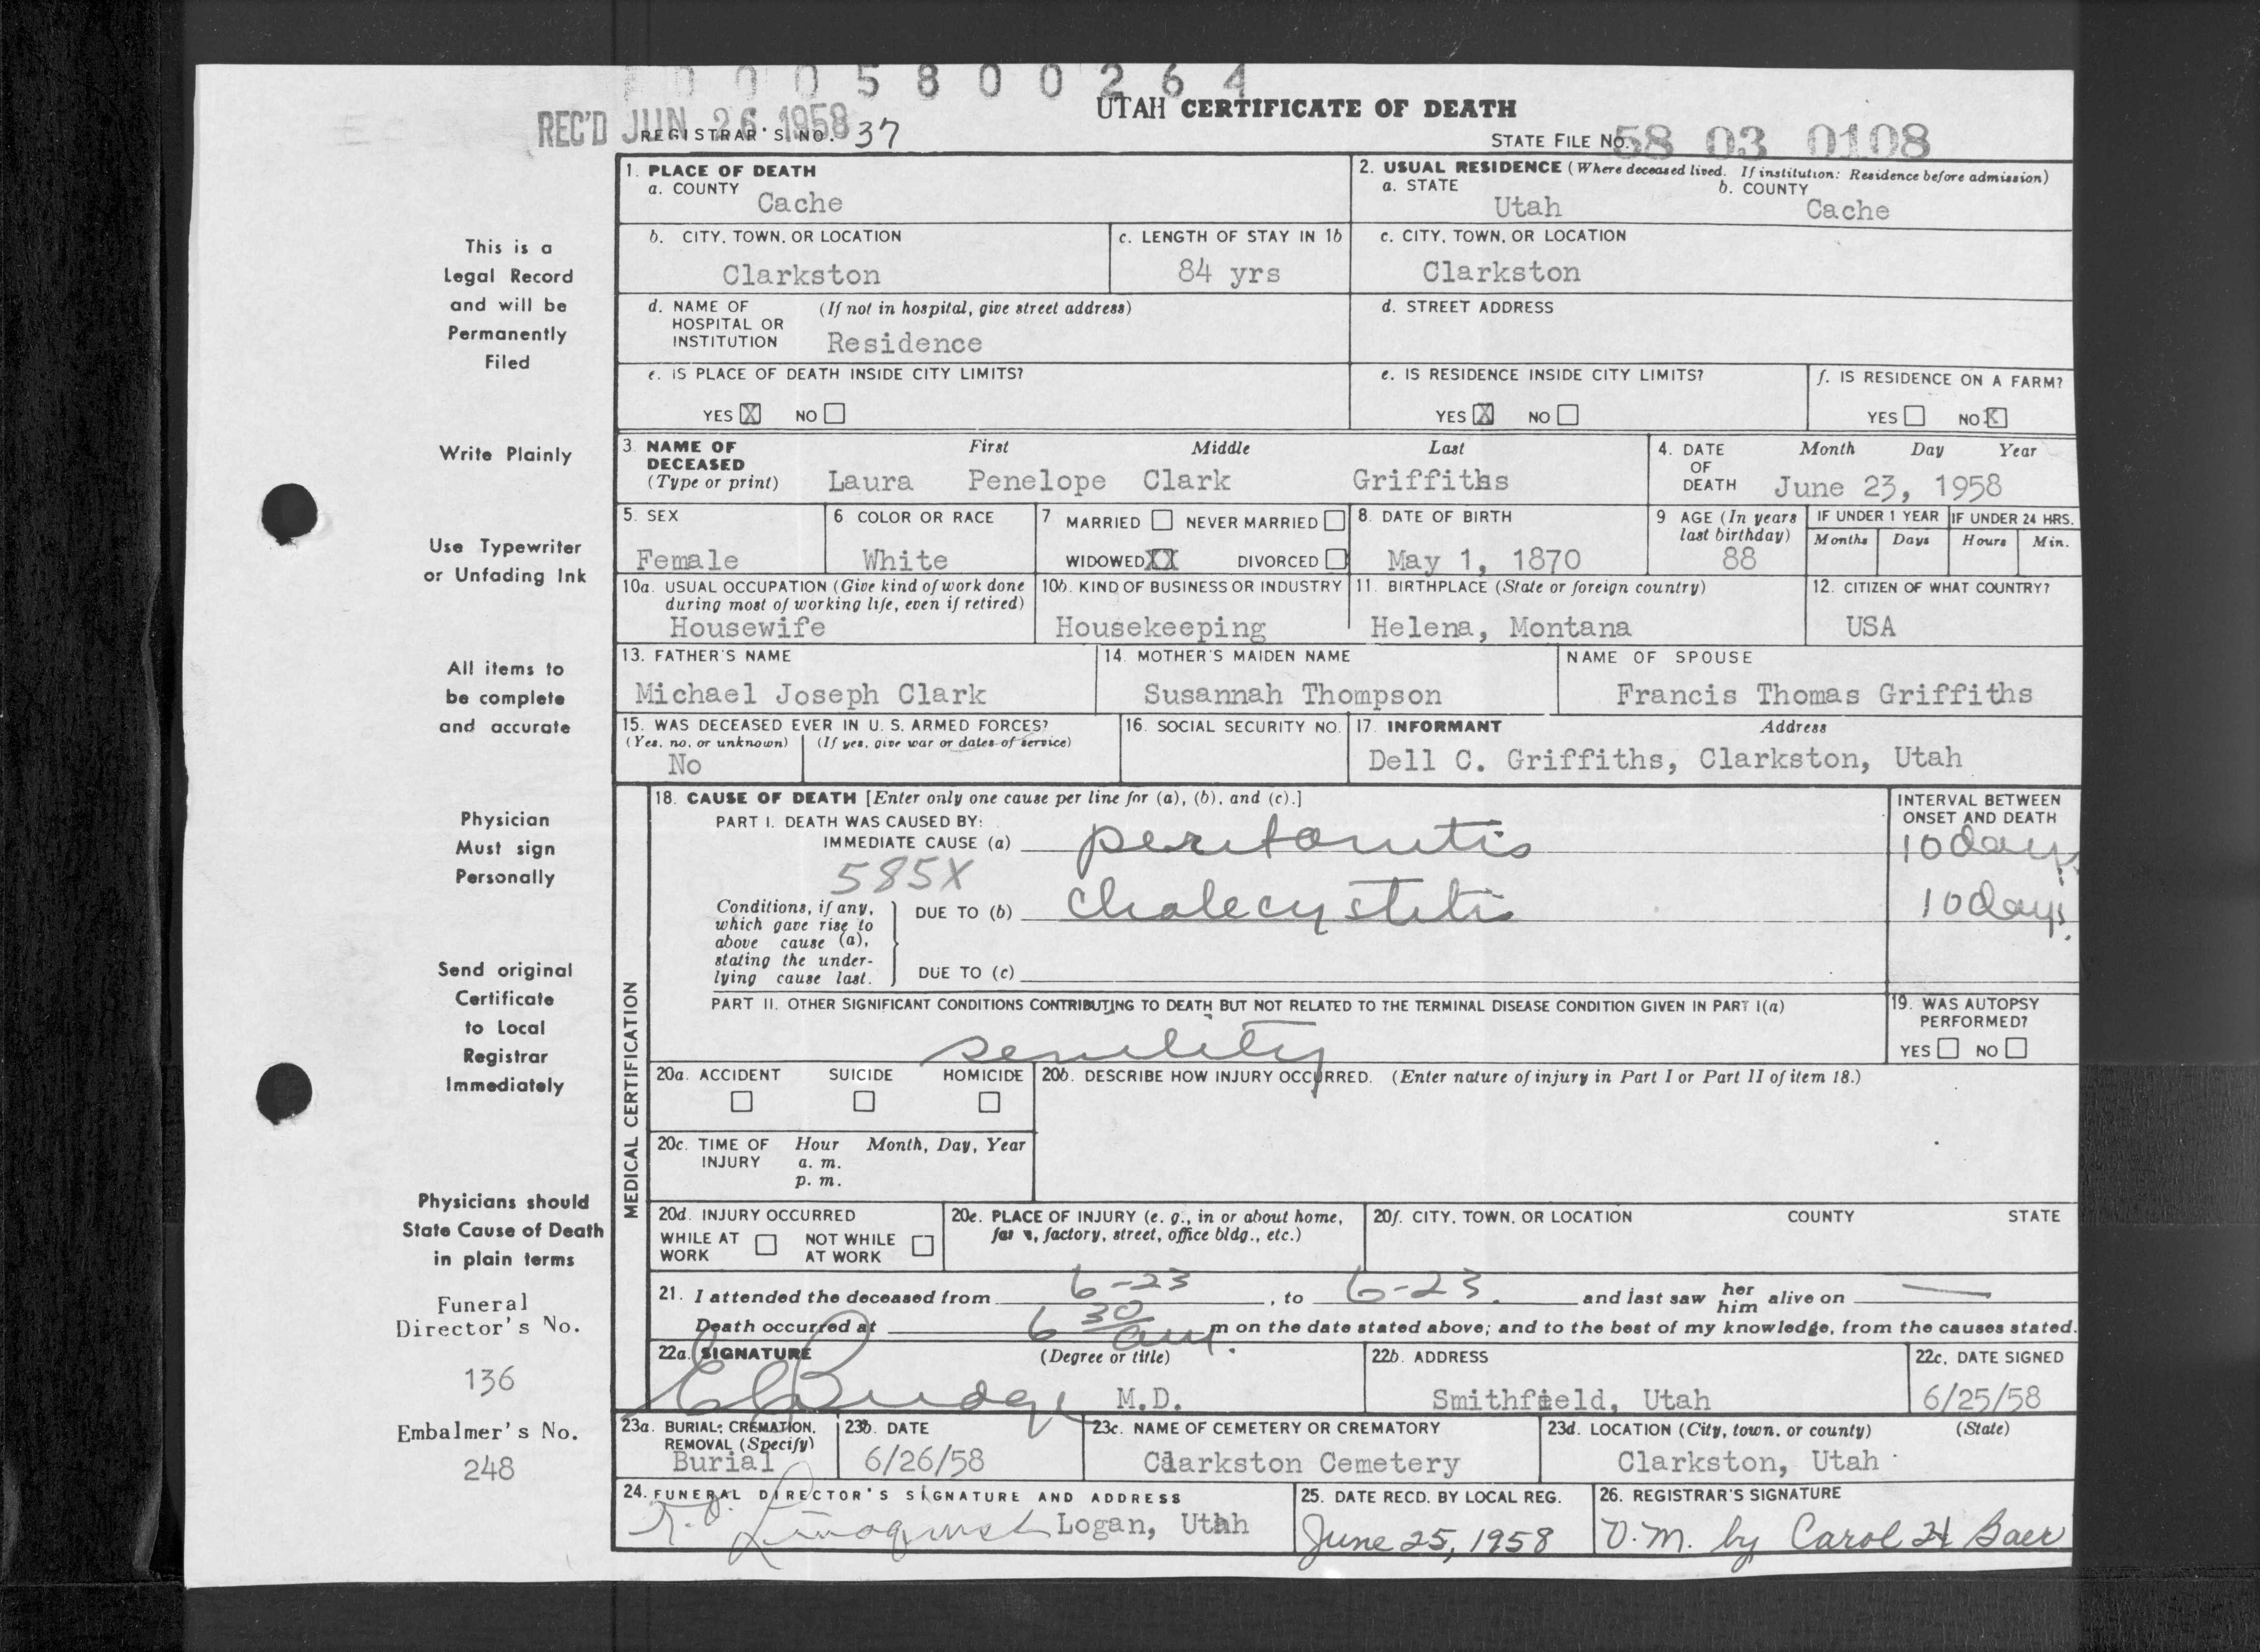 0005800264
UTAH CERTIFICATE OF DEATH
REC'D JUN 26 1958
REGISTRAR'S NO. 37
STATE FILE NO. 58 03 0108
This is a
Legal Record
and will be
Permanently
Filed
Write Plainly
Use Typewriter
or Unfading Ink
All items to
be complete
and accurate
Physician
Must sign
Personally
Send original
Certificate
to Local
Registrar
Immediately
Physicians should
State Cause of Death
in plain terms
Funeral
Director's No.
136
Embalmer's No.
248
1. PLACE OF DEATH
a. COUNTY
Cache
2. USUAL RESIDENCE (Where deceased lived. If institution: Residence before admission)
a. STATE b. COUNTY
Utah Cache
b. CITY, TOWN, OR LOCATION
Clarkston
c. LENGTH OF STAY IN 1b
84 yrs
c. CITY, TOWN, OR LOCATION
Clarkston
d. NAME OF (If not in hospital, give street address)
HOSPITAL OR
INSTITUTION Residence
d. STREET ADDRESS
e. IS PLACE OF DEATH INSIDE CITY LIMITS?
YES X NO
e. IS RESIDENCE INSIDE CITY LIMITS?
YES X NO
f. IS RESIDENCE ON A FARM?
YES NO X
3. NAME OF First Middle Last
DECEASED
(Type or print) Laura Penelope Clark Griffiths
4. DATE Month Day Year
OF
DEATH June 23, 1958
5. SEX
Female
6 COLOR OR RACE
White
7 MARRIED NEVER MARRIED
WIDOWED XX DIVORCED
8. DATE OF BIRTH
May 1, 1870
9 AGE (In years
last birthday)
88
IF UNDER 1 YEAR IF UNDER 24 HRS.
Months Days Hours Min.
10a. USUAL OCCUPATION (Give kind of work done
during most of working life, even if retired)
Housewife
10b. KIND OF BUSINESS OR INDUSTRY
Housekeeping
11. BIRTHPLACE (State or foreign country)
Helena, Montana
12. CITIZEN OF WHAT COUNTRY?
USA
13. FATHER'S NAME
Michael Joseph Clark
14. MOTHER'S MAIDEN NAME
Susannah Thompson
NAME OF SPOUSE
Francis Thomas Griffiths
15. WAS DECEASED EVER IN U. S. ARMED FORCES?
(Yes, no, or unknown) (If yes, give war or dates of service)
No
16. SOCIAL SECURITY NO.
17. INFORMANT Address
Dell C. Griffiths, Clarkston, Utah
MEDICAL CERTIFICATION
18. CAUSE OF DEATH [Enter only one cause per line for (a), (b), and (c).]
PART I. DEATH WAS CAUSED BY:
IMMEDIATE CAUSE (a) peritonitis
585X
Conditions, if any,
which gave rise to
above cause (a),
stating the under-
lying cause last.
DUE TO (b) cholecystitis
DUE TO (c)
INTERVAL BETWEEN
ONSET AND DEATH
10 days
10 days
PART II. OTHER SIGNIFICANT CONDITIONS CONTRIBUTING TO DEATH BUT NOT RELATED TO THE TERMINAL DISEASE CONDITION GIVEN IN PART I(a)
senility
19. WAS AUTOPSY
PERFORMED?
YES NO
20a. ACCIDENT SUICIDE HOMICIDE
20b. DESCRIBE HOW INJURY OCCURRED. (Enter nature of injury in Part I or Part II of item 18.)
20c. TIME OF Hour Month, Day, Year
INJURY a. m.
p. m.
20d. INJURY OCCURRED
WHILE AT NOT WHILE
WORK AT WORK
20e. PLACE OF INJURY (e. g., in or about home,
farm, factory, street, office bldg., etc.)
20f. CITY, TOWN, OR LOCATION COUNTY STATE
21. I attended the deceased from 6-23, to 6-23. and last saw her him alive on —
Death occurred at 6 30 am. m on the date stated above; and to the best of my knowledge, from the causes stated.
22a. SIGNATURE (Degree or title)
E C Budge M.D.
22b. ADDRESS
Smithfield, Utah
22c. DATE SIGNED
6/25/58
23a. BURIAL, CREMATION,
REMOVAL (Specify)
Burial
23b. DATE
6/26/58
23c. NAME OF CEMETERY OR CREMATORY
Clarkston Cemetery
23d. LOCATION (City, town, or county) (State)
Clarkston, Utah
24. FUNERAL DIRECTOR'S SIGNATURE AND ADDRESS
Lindquist Logan, Utah
25. DATE RECD. BY LOCAL REG.
June 25, 1958
26. REGISTRAR'S SIGNATURE
O.M. by Carol H Baer